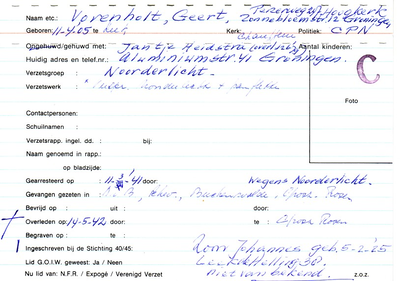 Naam etc.: Vorenholt, Geert, Hoogkerk
Zonnebloemstr. 12 Groningen
Geboren: 11-4.05 te Kerk: Politiek: CPN
Ongehuwd/gehuwd met: Jantje Aantal kinderen:
Huidig adres en telef.nr.: Aluminiumstr. 41 Groningen.
Verzetsgroep : Noorderlicht.
Verzetswerk :
Foto
C
Contactpersonen:
Schuilnamen :
Verzetsrapp. ingel. dd. : bij:
Naam genoemd in rapp.:
op bladzijde:
Gearresteerd op : 11- -41 door: Wegens Noorderlicht.
Gevangen gezeten in
Bevrijd op : uit : door:
Overleden op: 14-5-42 door: te : Gross Rosen
Begraven op : te :
Ingeschreven bij de Stichting 40/45: Zoon Johannes geb. 5-2-
Lid G.O.I.W. geweest: Ja / Neen
Nu lid van: N.F.R. / Expogé / Verenigd Verzet Niet van bekend. z.o.z.